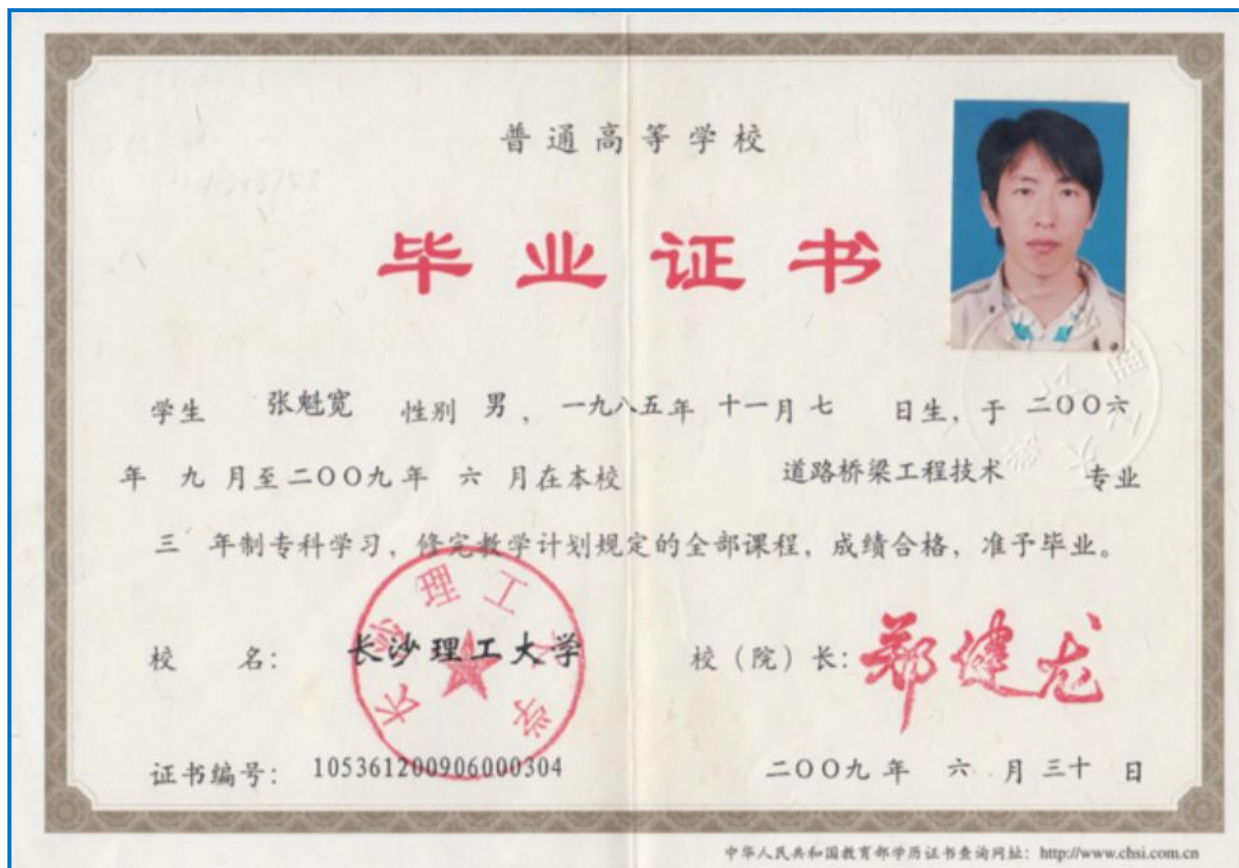 普通高等学校
毕业证书
学生 张魁宽 性别 男，一九八五年 十一月 七 日生，于 二〇〇六
年 九 月至二〇〇九年 六 月在本校 道路桥梁工程技术 专业
三 年制专科学习，修完教学计划规定的全部课程，成绩合格，准予毕业。
校 名： 长沙理工大学 校（院）长：郑健龙
长沙理工大学
证书编号： 105361200906000304 二〇〇九年 六 月 三十 日
中华人民共和国教育部学历证书查询网址：http://www.chsi.com.cn